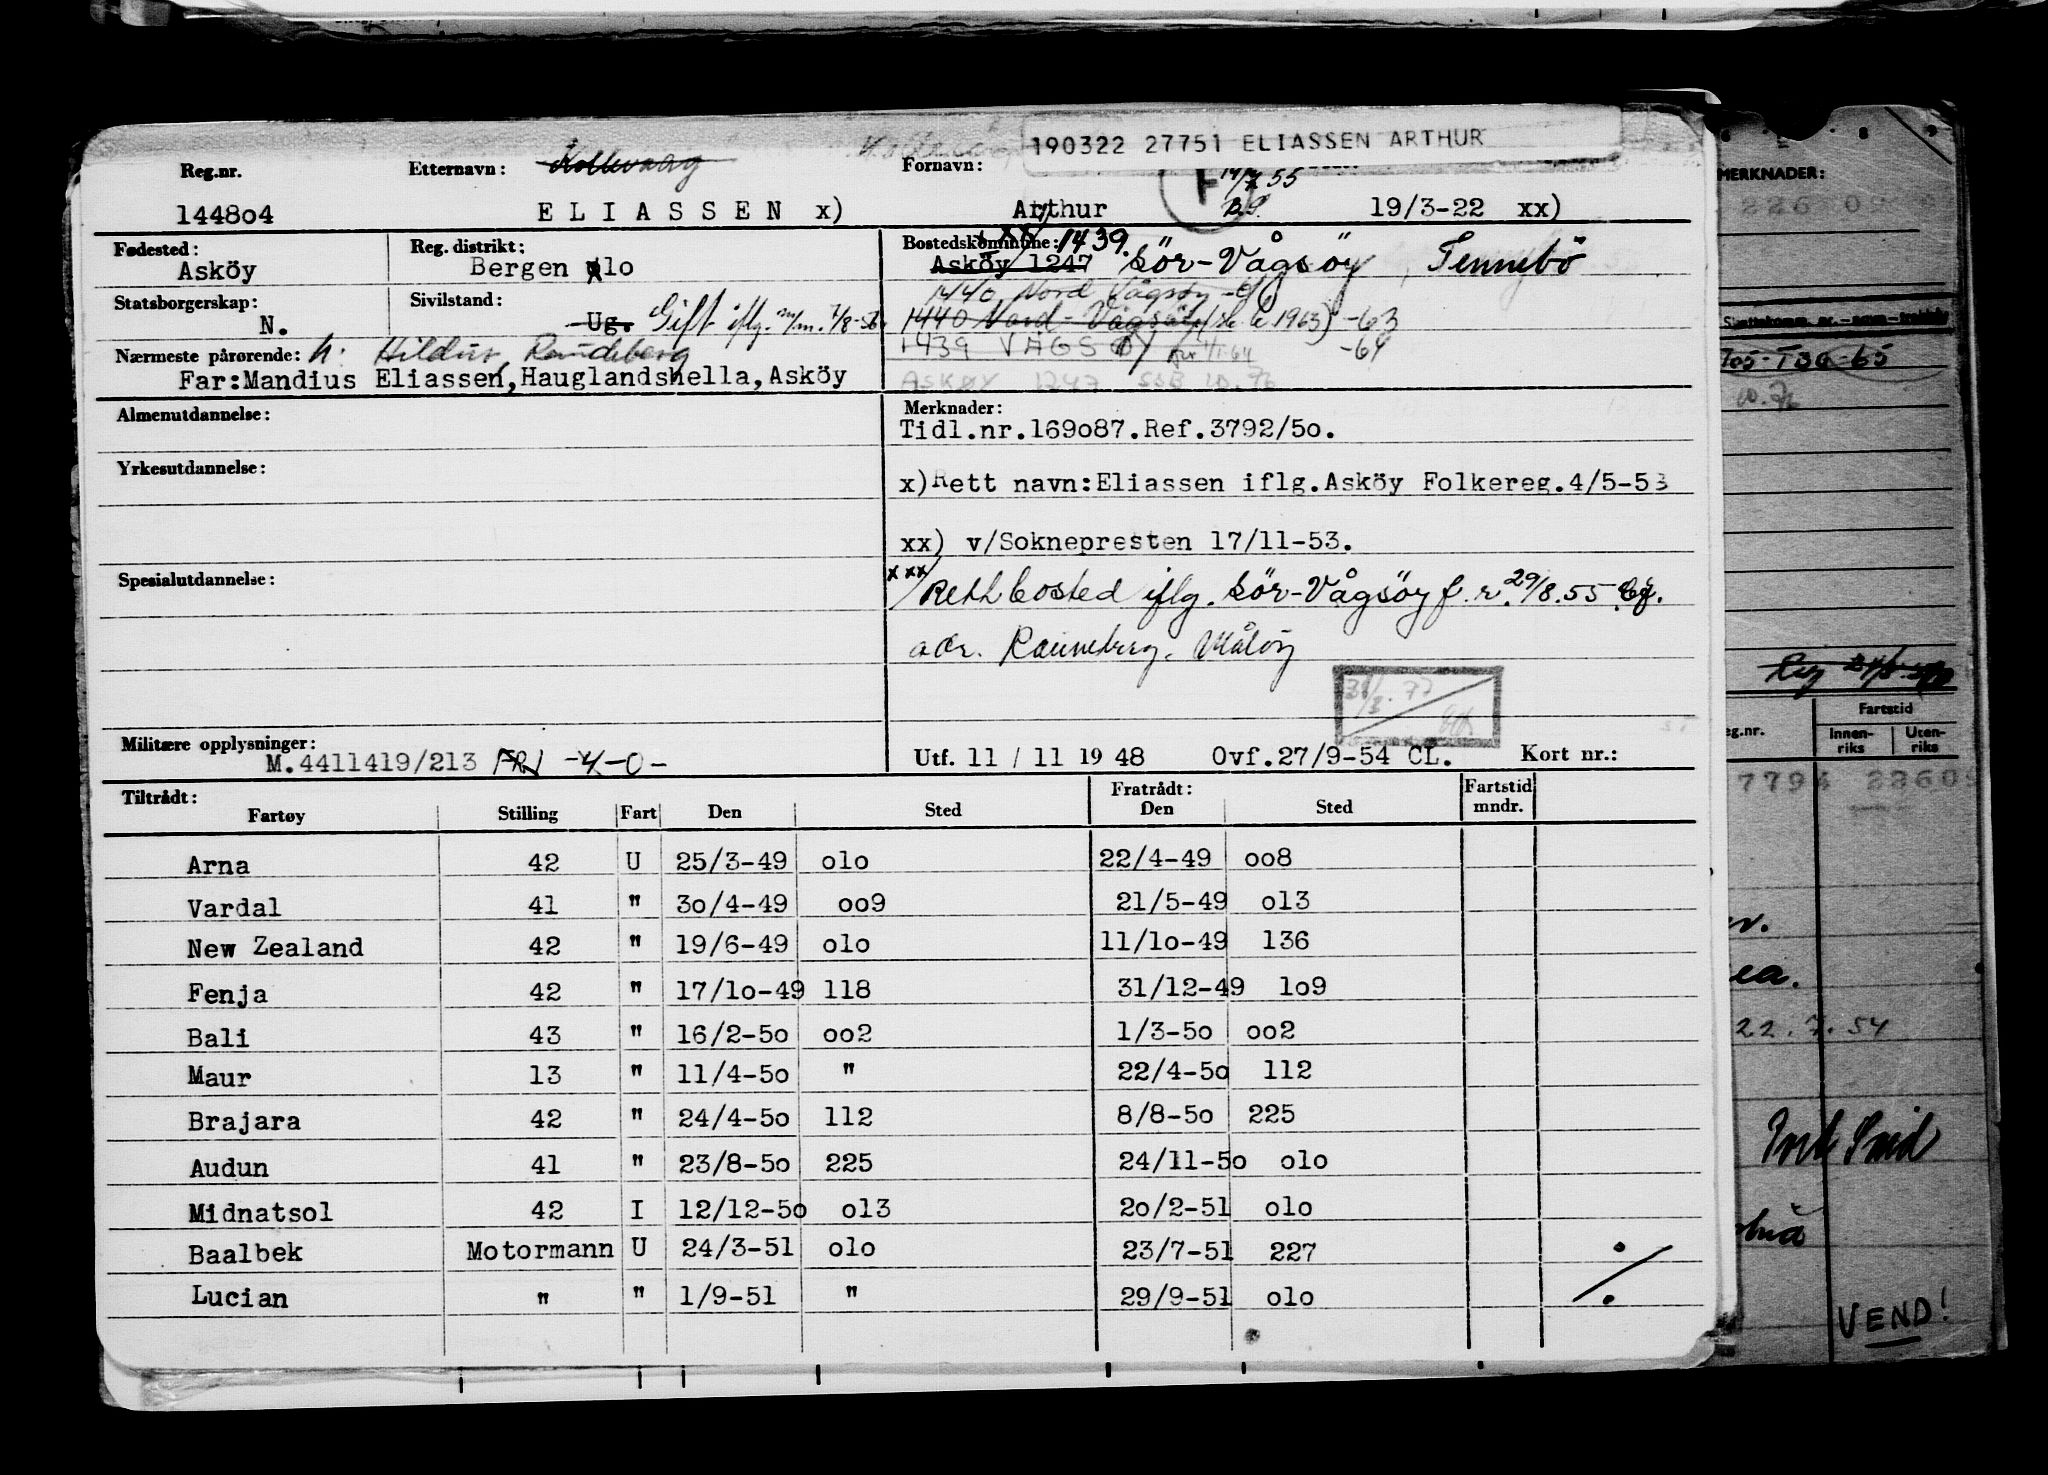 190322 27751 ELIASSEN ARTHUR
Reg.nr. Etternavn: Fornavn:
14/7 55
144804 ELIASSEN x) Arthur 19/3-22 xx)
Fødested: Reg. distrikt: Bostedskommune: 1439.
Asköy Bergen olo Asköy 1247 Sör-Vågsöy, Tennebö
1440 Nord Vågsöy
Statsborgerskap: Sivilstand:
N. Ug. Gift iflg. m/m. 7/8-56 1440 Nord-Vågsöy 1963) -63
Nærmeste pårørende: h: Hildur, Raudeberg 1439 VÅGSØY 1/1-64 -64
Far:Mandius Eliassen,Hauglandshella,Asköy ASKØY 1247 SSB 10.76
Almenutdannelse: Merknader:
Tidl.nr.169o87.Ref.3792/5o.
Yrkesutdannelse:
x)Rett navn:Eliassen iflg.Asköy Folkereg.4/5-53
xx) v/Soknepresten 17/11-53.
Spesialutdannelse: xxx/ Rett bosted iflg. Sör-Vågsöy f.r. 29/8.55
adr. Raudeberg, Måløy
31/3.77
Militære opplysninger:
M.4411419/213 FRI -4-0- Utf. 11 / 11 19 48 Ovf.27/9-54 CL. Kort nr.:
Tiltrådt: Fratrådt: Fartstid
Fartøy Stilling Fart Den Sted Den Sted mndr.
Arna 42 U 25/3-49 olo 22/4-49 oo8
Vardal 41 " 3o/4-49 oo9 21/5-49 ol3
New Zealand 42 " 19/6-49 olo 11/lo-49 136
Fenja 42 " 17/lo-49 118 31/12-49 lo9
Bali 43 " 16/2-5o oo2 1/3-5o oo2
Maur 13 " 11/4-5o " 22/4-5o 112
Brajara 42 " 24/4-5o 112 8/8-5o 225
Audun 41 " 23/8-5o 225 24/11-5o olo
Midnatsol 42 I 12/12-5o ol3 2o/2-51 olo
Baalbek Motormann U 24/3-51 olo 23/7-51 227
Lucian " " 1/9-51 " 29/9-51 olo
MERKNADER:
Fartstid
Innen-riks Uten-riks
22.7.54
VEND!